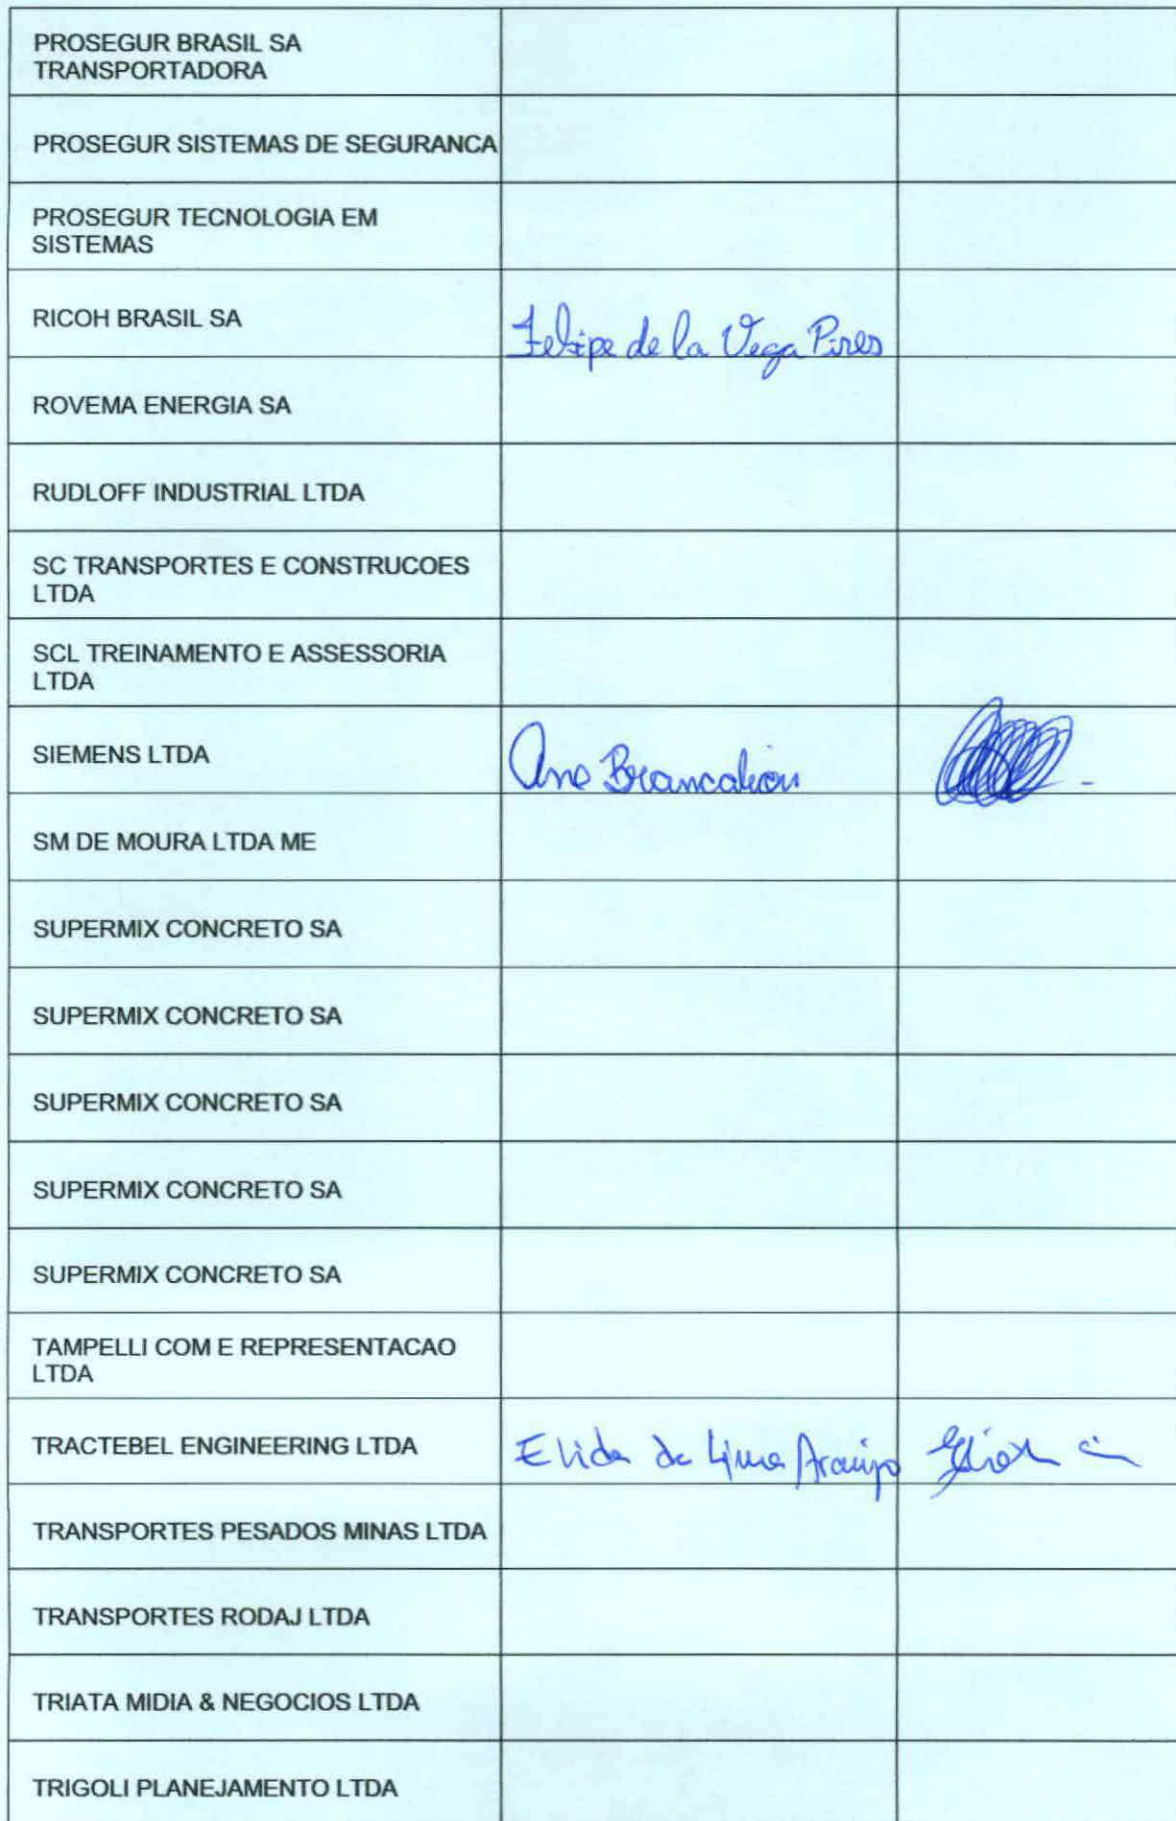 PROSEGUR BRASIL SA
TRANSPORTADORA
PROSEGUR SISTEMAS DE SEGURANCA
PROSEGUR TECNOLOGIA EM
SISTEMAS
RICOH BRASIL SA Felipe de la Vega Pires
ROVEMA ENERGIA SA
RUDLOFF INDUSTRIAL LTDA
SC TRANSPORTES E CONSTRUCOES
LTDA
SCL TREINAMENTO E ASSESSORIA
LTDA
SIEMENS LTDA Ana Brancalion
SM DE MOURA LTDA ME
SUPERMIX CONCRETO SA
SUPERMIX CONCRETO SA
SUPERMIX CONCRETO SA
SUPERMIX CONCRETO SA
SUPERMIX CONCRETO SA
TAMPELLI COM E REPRESENTACAO
LTDA
TRACTEBEL ENGINEERING LTDA Elida de Lima Araújo
TRANSPORTES PESADOS MINAS LTDA
TRANSPORTES RODAJ LTDA
TRIATA MIDIA & NEGOCIOS LTDA
TRIGOLI PLANEJAMENTO LTDA